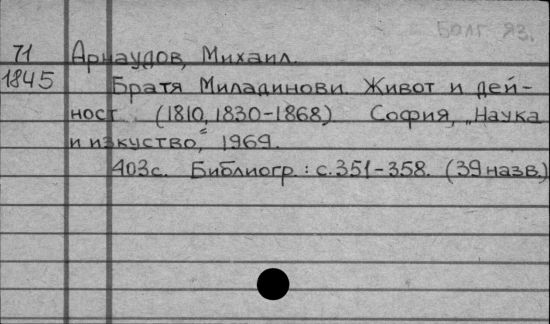 Болг яз.
71 Арнаудов, Михаил.
1845 Братя Миладинови. Живот и дей-
ност (1810, 1830-1868) София, „Наука
и изкуство“, 1969.
403с. Библиогр.: с.351-358. (39 назв.)